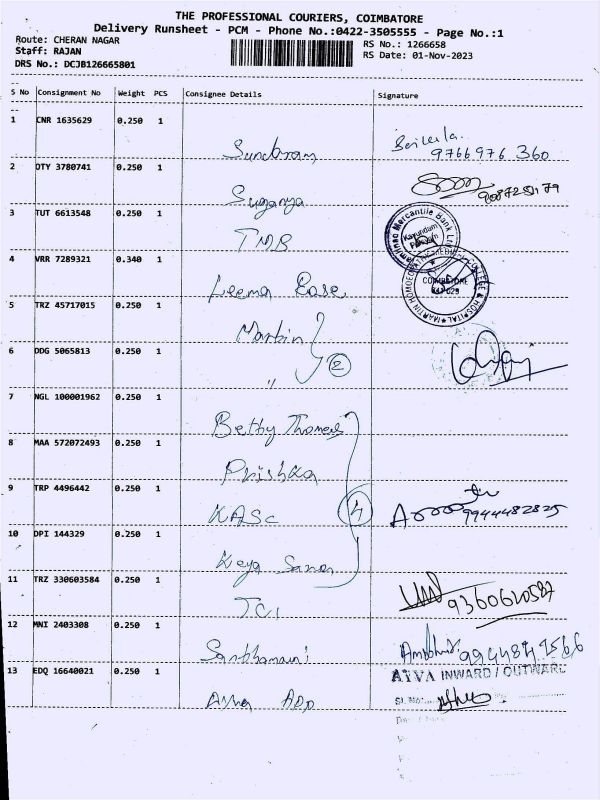 THE PROFESSIONAL COURIERS, COIMBATORE
Delivery Runsheet - PCM - Phone No.:0422-3505555 - Page No.:1
Route: CHERAN NAGAR
Staff: RAJAN
DRS No.: DCJB126665801
RS No.: 1266658
RS Date: 01-Nov-2023
S No Consignment No Weight PCS Consignee Details Signature
1 CNR 1635629 0.250 1
Sundaram
9766976 360
2 OTY 3780741 0.250 1
Suganya
3 TUT 6613548 0.250 1
TMB
4 VRR 7289321 0.340 1
Leema Rose
5 TRZ 45717015 0.250 1
Martin
6 DDG 5065813 0.250 1
" 2
7 NGL 100001962 0.250 1
Betty Thomas
8 MAA 572072493 0.250 1
Prishka
9 TRP 4496442 0.250 1
KASC 4
9944482825
10 DPI 144329 0.250 1
Keya Saran
11 TRZ 330603584 0.250 1
TCI
9360610587
12 MNI 2403308 0.250 1
13 EDQ 16640021 0.250 1
INWARD / OUTWARD
Sl. No.